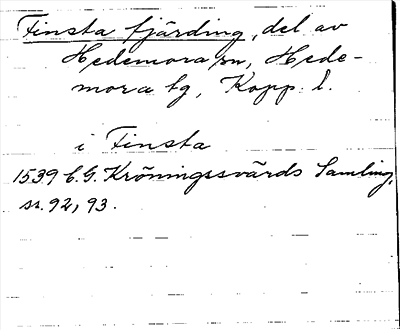 Finsta fjärding, del av
Hedemora sn, Hede-
mora tg, Kopp. l.
i Finsta
1539 C.G. Kröningssvärds Samling,
ss. 92, 93.